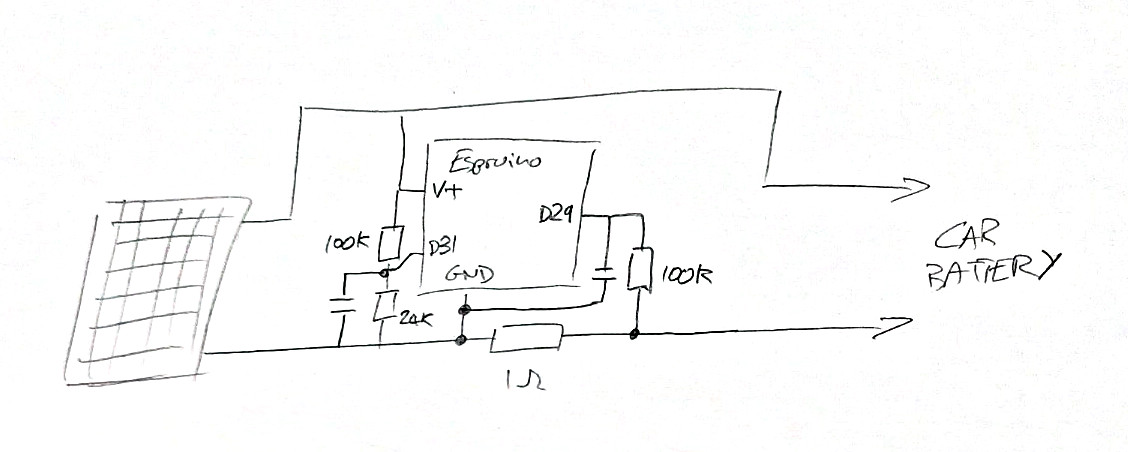 Espruino
V+
D29
100K
D31
GND
100K
24K
1Ω
CAR
BATTERY